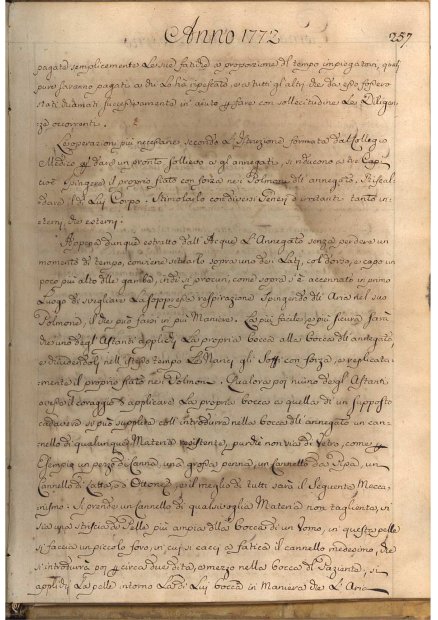 Anno 1772
257
pagate semplicemente Le sue fatiche a proporzione del tempo impiegatovi, quali
pure saranno pagati a chi L'ha ripescato, e a tutti gli altri che da esso fossero
stati chiamati successivamente in aiuto p fare con sollecitudine Le Diligen-
ze occorrenti.
Le operazioni più necessarie, secondo L'Istruzione formata dal Collegio
Medico p dare un pronto sollievo a gl'annegati, si riducono a tre Capi
cioè Spingere il proprio fiato con forza nei Polmoni dell'annegato, Riscal-
dare il di Lui Corpo. Stimolarlo con diversi Generi d'irritanti tanto in-
terni, che esterni.
Appena dunque estratto dall'Acque L'Annegato senza perdere un
momento di tempo, conviene situarlo sopra uno dei Lati, col dorso, e capo un
poco più alto delle gambe, indi si procuri, come sopra s'è accennato in primo
Luogo di svegliare La soppressa respirazione Spingendo dell'Aria nel suo
Polmone, il che può farsi in più Maniere. La più facile, e più sicura sarà
che uno degl'Astanti applichi La propria bocca alla bocca dell'annegato,
e chiudendoli nell'istesso tempo Le Narici gli Soffi con forza, e replicata-
mente il proprio fiato nei Polmoni. Qualora poi niuno degl'Astanti
avesse il coraggio d'applicare La propria bocca a quella di un supposto
cadavere si può supplire coll'introdurre nella bocca dell'annegato un can-
nello di qualunque Materia resistenza, purchè non sia di Vetro, come p
Esempio un pezzo di Canna, una grossa penna, un Cannello da Pipa, un
Cannello di Latta, o Ottone, e il meglio di tutti sarà il Seguente Mecca-
nismo. Si prende un Cannello di qualsivoglia Materia non tagliente, si
una striscia di Pelle più ampia della bocca di un Uomo, in questa pelle
si faccia un piccolo foro, in cui si cacci a fatica il cannello medesimo, che
si introdurrà poi p circa due dita, a mezzo nella bocca del Paziente, si
applichi La pelle intorno La di Lui bocca in Maniera che L'Aria